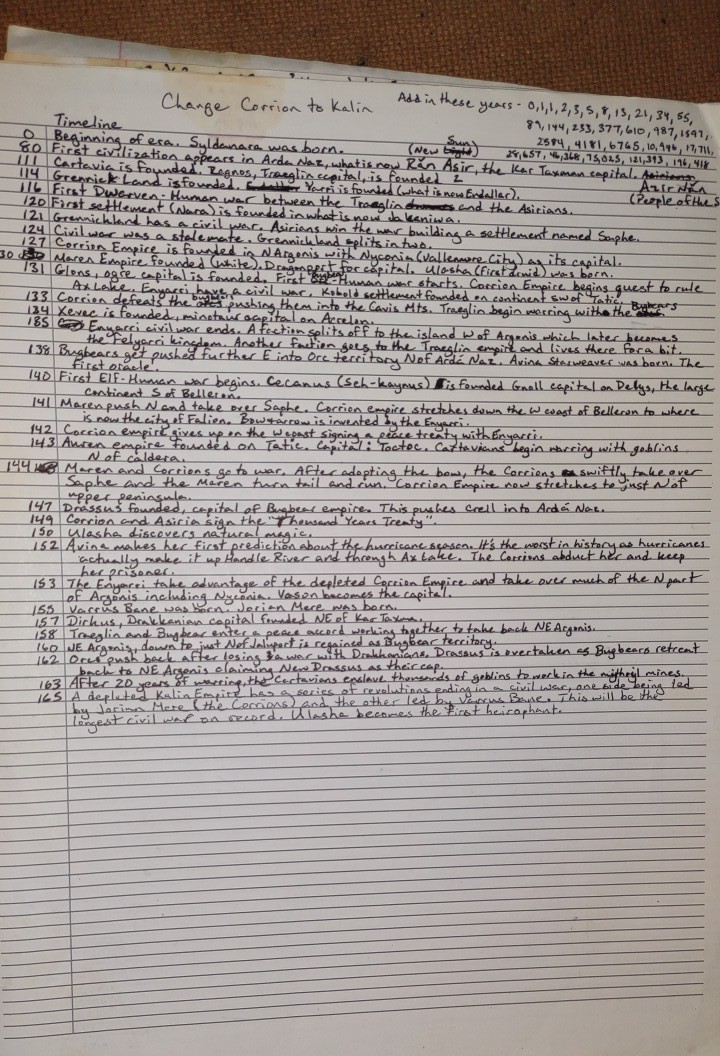 Change Corrion to Kalin
Add in these years - 0,1,1,2,3,5,8,13,21,34,55,
89,144,233,377,610,987,1597,
2584,4181,6765,10,946,17,711,
28,657,46,368,75,025,121,393,196,418
Timeline
0 Beginning of era. Syldanara was born. (New Sun)
80 First civilization appears in Arda Naz, what is now Răn Asir, the Kar Taxman capital.
Azir Năn
(People of the S
111 Cartavia is founded. Zognos, Traeglin capital, is founded 2
114 Grennick Land is founded. Yarri is founded (what is now Endallar).
116 First Dwarven-Human war between the Traeglin and the Asicians.
120 First settlement (Nara) is founded in what is now Jakeniwa.
121 Grennichland has a civil war. Asicians win the war building a settlement named Saphe.
124 Civil war was a stalemate. Grennichland splits in two.
127 Corrion Empire is founded in N Argonis with Nyconia (Vallemore City) as its capital.
130 Maren Empire founded (white). Dragonport for capital. Ulasha (first druid) was born.
131 Glons, ogre capital is founded. First Bugbear-Human war starts. Corrion Empire begins quest to rule
Ax Lake. Enyarri have a civil war. Kobold settlement founded on continent SW of Tatic.
133 Corrion defeats the bugbears pushing them into the Cavis Mts. Traeglin begin warring with the Bugbears
134 Xevec is founded, minotaur capital on Accelon.
135 Enyarri civil war ends. A faction splits off to the island W of Argonis which later becomes
the Felyarri kingdom. Another faction goes to the Traeglin empire and lives there for a bit.
138 Bugbears get pushed further E into Orc territory N of Ardá Naz. Avina Starweaver was born. The
first oracle.
140 First Elf-Human war begins. Cecanus (Seh-kaynus) is founded Gnoll capital on Delys, the large
continent S of Belleron.
141 Maren push N and take over Saphe. Corrion empire stretches down the W coast of Belleron to where
is now the city of Falien. Bow + arrow is invented by the Enyarri.
142 Corrion empire gives up on the W coast signing a peace treaty with Enyarri.
143 Auren empire founded on Tatic. Capital: Toctoc. Cartavians begin warring with goblins
N of caldera.
144 Maren and Corrions go to war. After adopting the bow, the Corrions swiftly take over
Saphe and the Maren turn tail and run. Corrion Empire now stretches to just N of
upper peninsula.
147 Drassus founded, capital of Bugbear empire. This pushes crell into Ardá Naz.
149 Corrion and Asiria sign the "Thousand Years Treaty".
150 Ulasha discovers natural magic.
152 Avina makes her first prediction about the hurricane season. It's the worst in history as hurricanes
actually make it up Handle River and through Ax Lake. The Corrions abduct her and keep
her prisoner.
153 The Enyarri take advantage of the depleted Corrion Empire and take over much of the N part
of Argonis including Nyconia. Vason becomes the capital.
155 Varrus Bane was born. Jorian Mere was born.
157 Dirkus, Drakkanian capital founded NE of Kar Taxma.
158 Traeglin and Bugbear enter a peace accord working together to take back NE Argonis.
160 NE Argonis, down to just N of Jaluport is regained as Bugbear territory.
162 Orcs push back after losing a war with Drakkanians. Drassus is overtaken as Bugbears retreat
back to NE Argonis claiming New Drassus as their cap.
163 After 20 years of warring, the Cartavians enslave thousands of goblins to work in the mithril mines.
165 A depleted Kalin Empire has a series of revolutions ending in a civil war, one side being led
by Jorian Mere (the Corrions) and the other led by Varrus Bane. This will be the
longest civil war on record. Ulasha becomes the first heirophant.